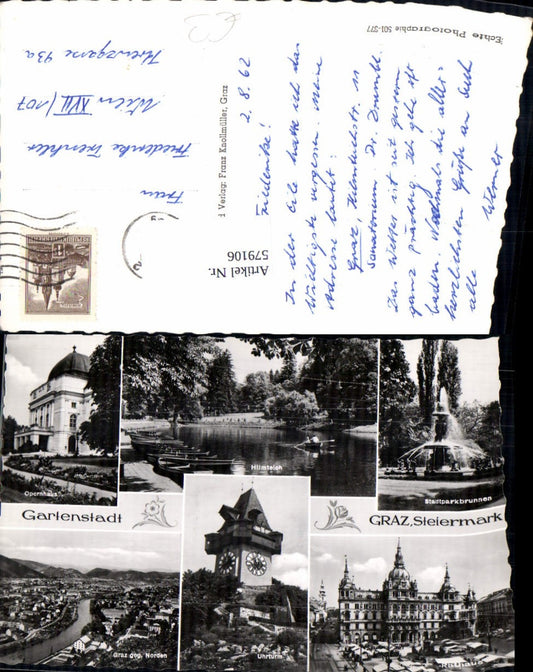 Echte Photographie 501-377
Verlag: Franz Knollmüller, Graz
Artikel Nr.
579106
Frau
Friederike
Wien XVII/107
43a
2.8.62
Friederike!
In der Eile hatte ich das
Wichtigste vergessen. Meine
Adresse lautet:
Graz, 11
Sanatorium Dr.
Das Wetter ist seit gestern
ganz prächtig. Ich gehe oft
baden. Nochmals die aller-
herzlichsten Grüße an Euch
alle
Opernhaus
Hilmteich
Stadtparkbrunnen
Gartenstadt
GRAZ, Steiermark
Graz geg. Norden
Uhrturm
Rathaus